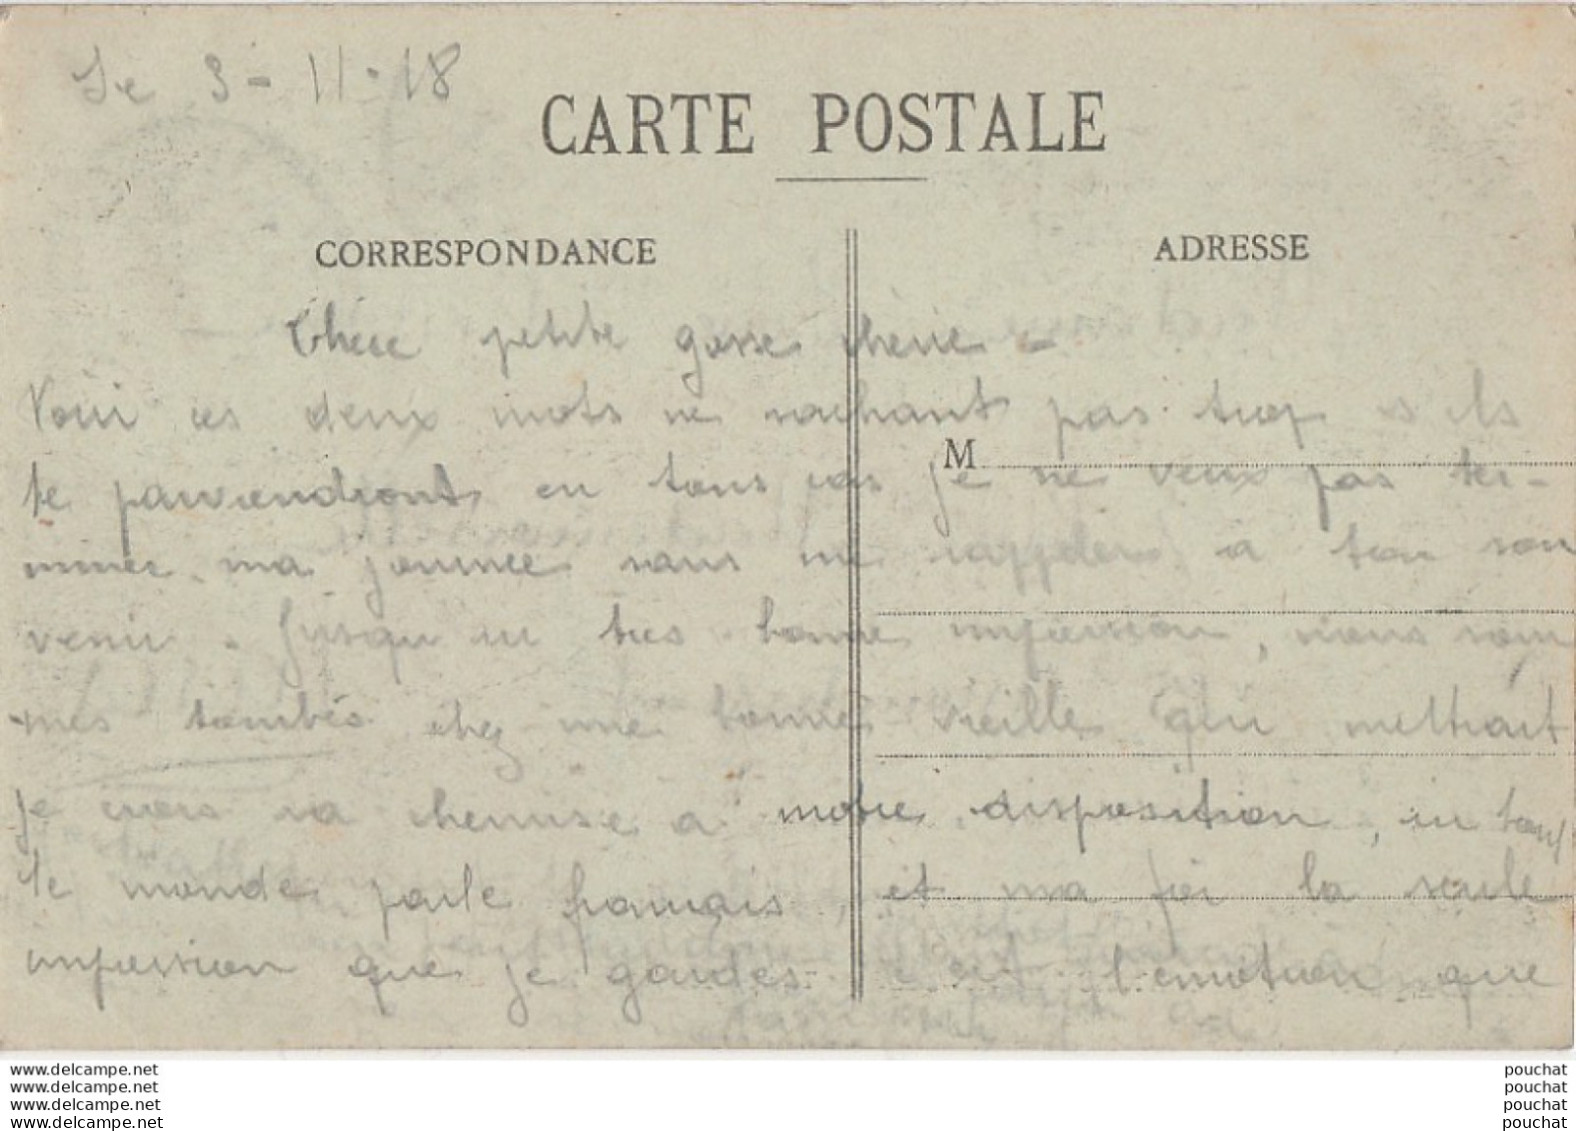 Le 3-11-18
CARTE POSTALE
CORRESPONDANCE
ADRESSE
Chère petite gosse chérie -
Voici ces deux mots ne sachant pas trop s'ils
M
te parviendront en tous cas je ne veux pas ter-
miner ma journée sans me rappeler à ton sou
venir. Jusqu'ici très bonne impression, nous som
mes tombés chez une bonne vieille qui mettrait
je crois sa chemise à notre disposition, ici tout
le monde parle français, et ma foi la seule
impression que je gardes c'est l'émotion que
www.delcampe.net
www.delcampe.net
www.delcampe.net
www.delcampe.net
pouchat
pouchat
pouchat
pouchat